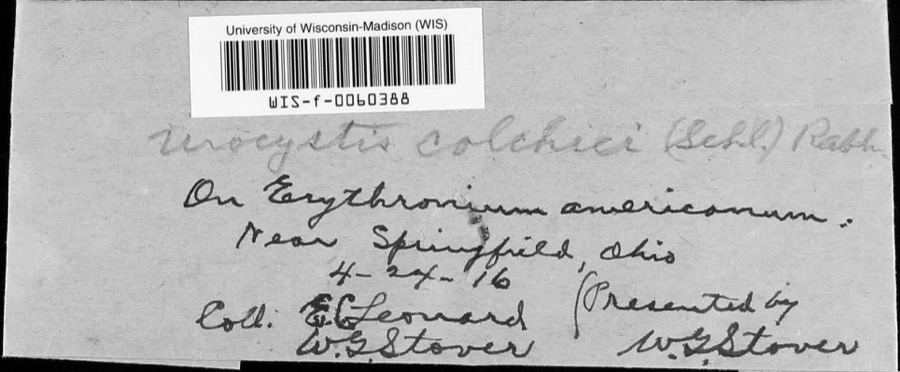 University of Wisconsin-Madison (WIS)
WIS-f-0060388
Urocystis colchici (Schl.) Rabh.
On Erythronium americanum.
Near Springfield, Ohio
4-24-16
Coll. E.C. Leonard
W.G. Stover
(Presented by
W.G. Stover